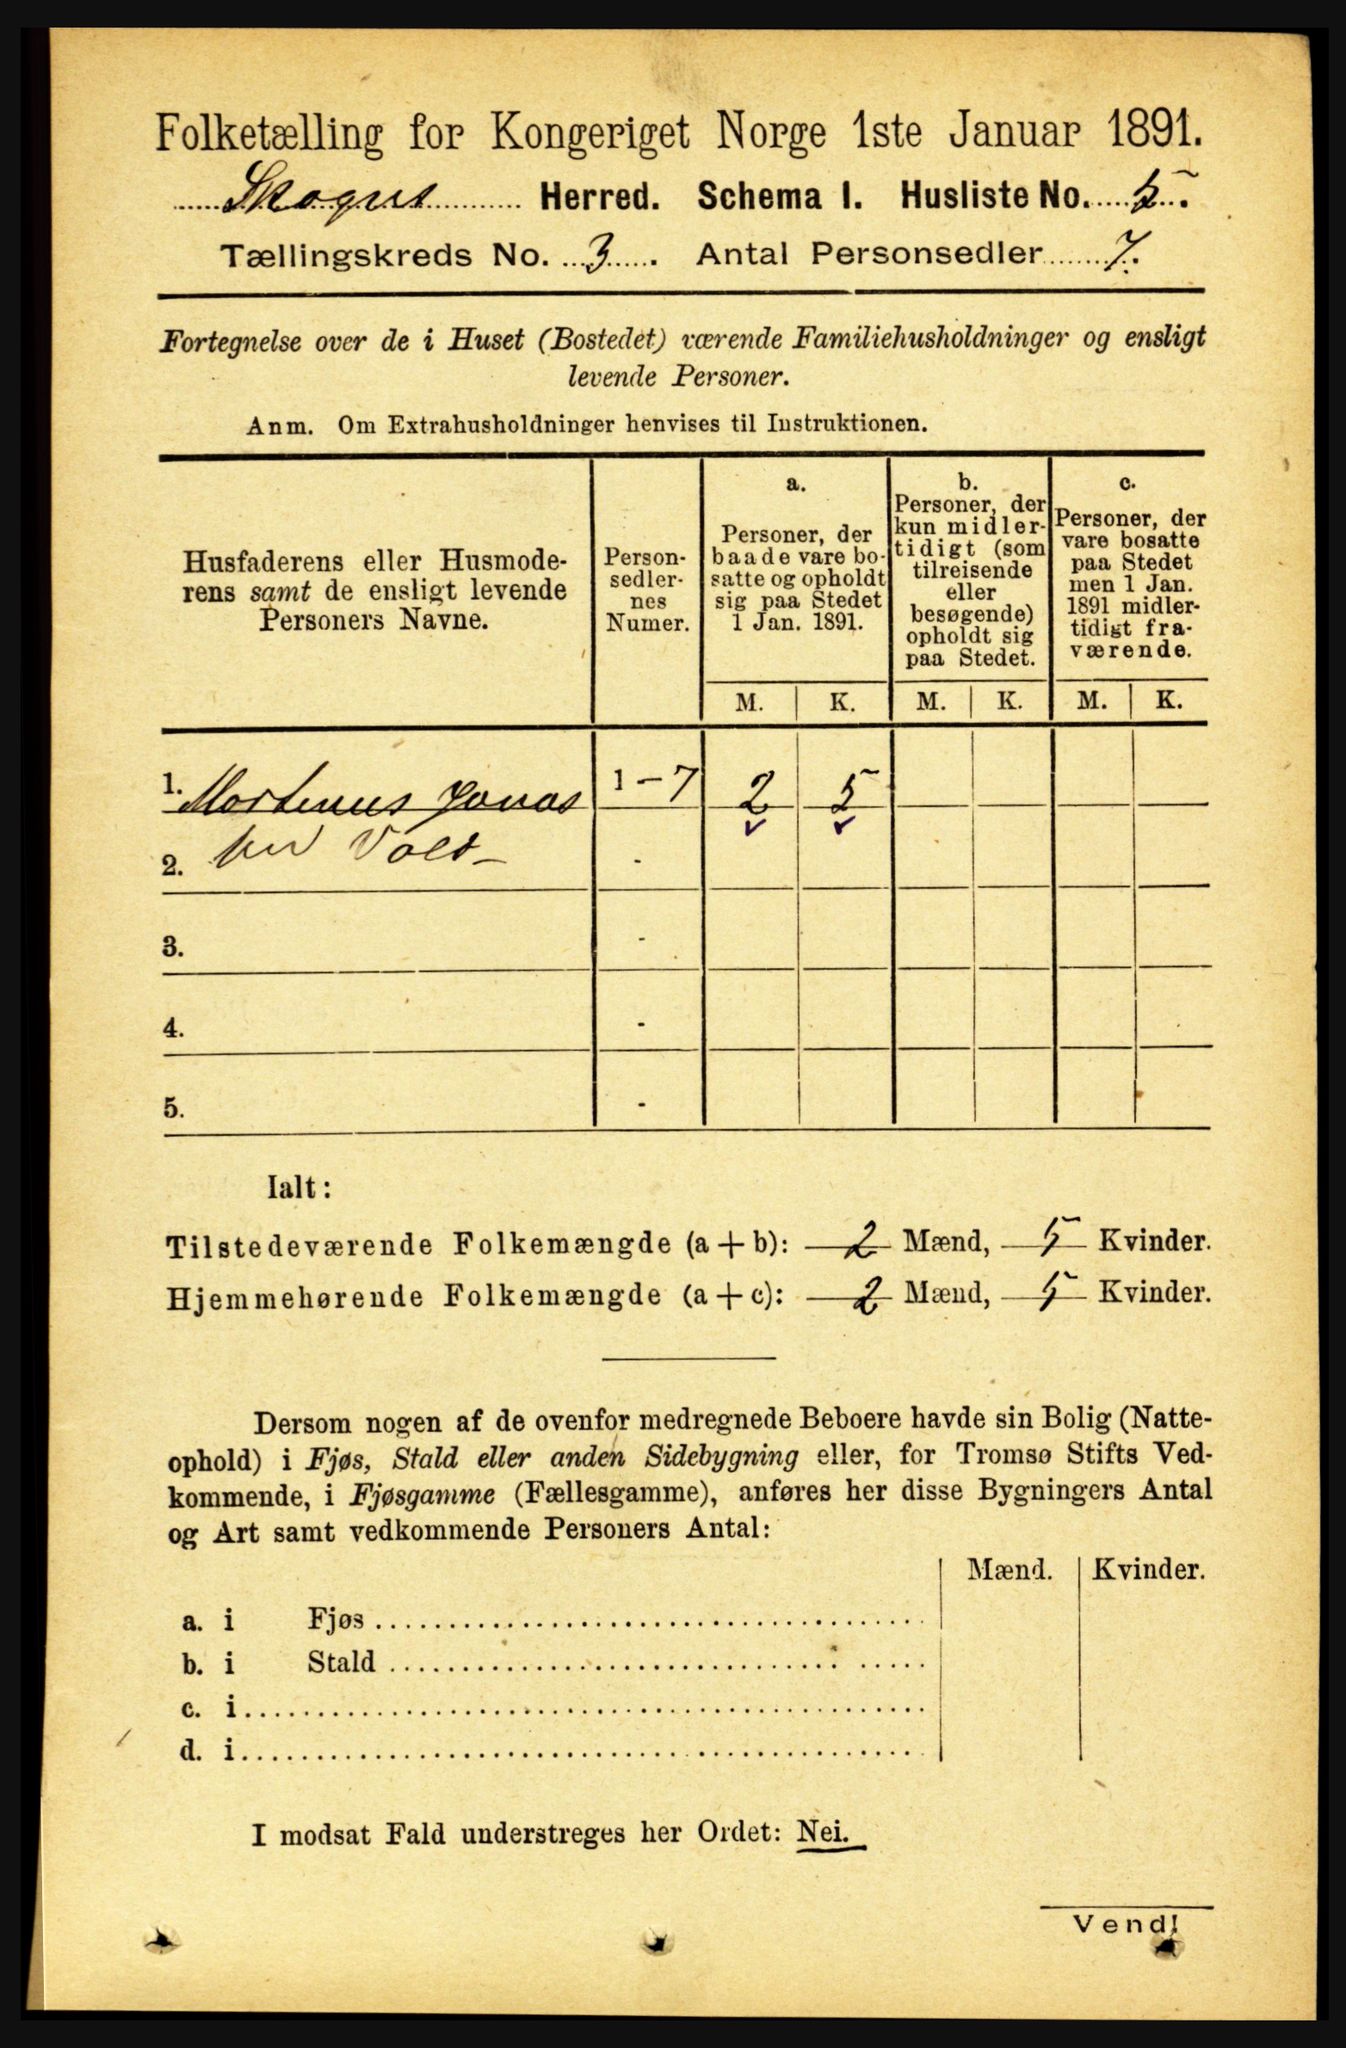 Folketælling for Kongeriget Norge 1ste Januar 1891.
Skogns Herred. Schema I. Husliste No. 5.
Tællingskreds No. 3. Antal Personsedler 7.
Fortegnelse over de i Huset (Bostedet) værende Familiehusholdninger og ensligt
levende Personer.
Anm. Om Extrahusholdninger henvises til Instruktionen.
Husfaderens eller Husmode-
rens samt de ensligt levende
Personers Navne.
Person-
sedler-
nes
Numer.
a.
Personer, der
baade vare bo-
satte og opholdt
sig paa Stedet
1 Jan. 1891.
b.
Personer, der
kun midler-
tidigt (som
tilreisende
eller
besøgende)
opholdt sig
paa Stedet.
c.
Personer, der
vare bosatte
paa Stedet
men 1 Jan.
1891 midler-
tidigt fra-
værende.
M. K. M. K. M. K.
1. Mortinus Jonas 1-7 2 5
2. sen Vold -
3. -
4. -
5. -
Ialt:
Tilstedeværende Folkemængde (a+b): 2 Mænd, 5 Kvinder.
Hjemmehørende Folkemængde (a+c): 2 Mænd, 5 Kvinder.
Dersom nogen af de ovenfor medregnede Beboere havde sin Bolig (Natte-
ophold) i Fjøs, Stald eller anden Sidebygning eller, for Tromsø Stifts Ved-
kommende, i Fjøsgamme (Fællesgamme), anføres her disse Bygningers Antal
og Art samt vedkommende Personers Antal:
Mænd. Kvinder.
a. i Fjøs
b. i Stald
c. i
d. i
I modsat Fald understreges her Ordet: Nei.
Vend!